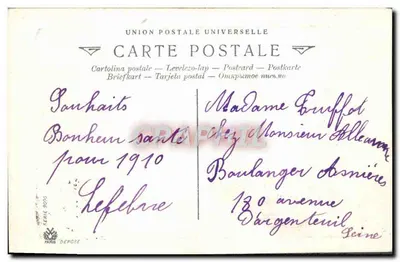 UNION POSTALE UNIVERSELLE
CARTE POSTALE
Cartolina postale — Levelezo-lap — Postcard — Postkarte
Briefkart — Tarjeta postal —
Souhaits
Bonheur santé
pour 1910
Lefebvre
Madame
chez Monsieur
Boulanger Asnières
130 avenue
D'argenteuil
Seine
DEPOSE